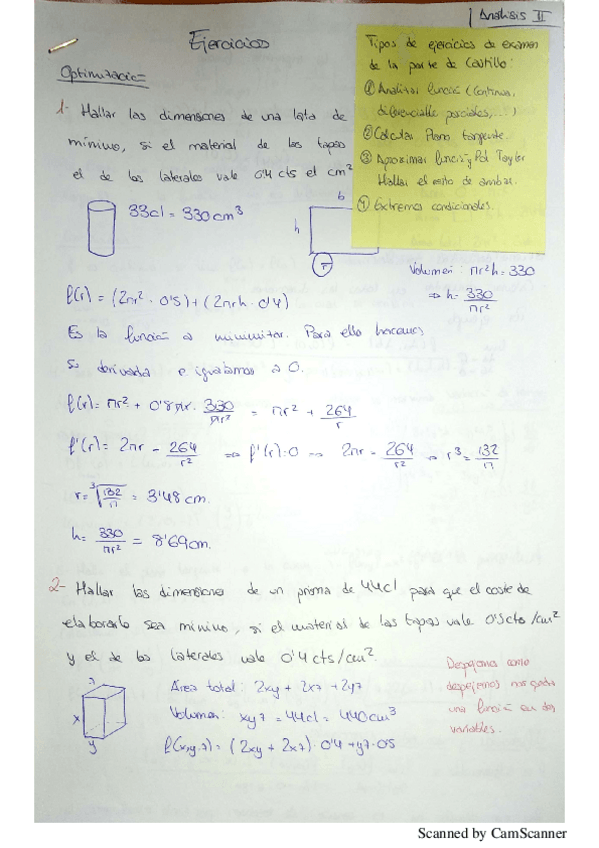 Analisis II
Ejercicios
Tipos de ejercicios de examen
de la parte de Castillo:
① Analizar función (continua,
diferenciable, parciales, ...)
② Calcular Plano tangente.
③ Aproximar función y Pol Taylor
Hallar el de ambar.
④ Extremos condicionales.
Optimización
1- Hallar las dimensiones de una lata de
mínimo, si el material de las tapas
el de los laterales vale 0'4 cts el cm²
33cl = 330 cm³
b
h
r
Volumen: πr²h = 330
⇒ h = 330/πr²
f(r) = (2πr² · 0'5) + (2πrh · 0'4)
Es la función a minimizar. Para ello hacemos
su derivada e igualamos a 0.
f(r) = πr² + 0'8πr · 330/πr² = πr² + 264/r
f'(r) = 2πr - 264/r² ⇒ f'(r) = 0 ⇒ 2πr - 264/r² ⇒ r³ = 132/π
r = ∛132/π = 3'48 cm.
h = 330/πr² = 8'69 cm.
2- Hallar las dimensiones de un prisma de 44cl para que el coste de
elaborarlo sea mínimo, si el material de las tapas vale 0'5 cts/cm²
y el de los laterales vale 0'4 cts/cm².
x
y
z
Area total: 2xy + 2xz + 2yz
Volumen: xyz = 44cl = 440cm³
f(x,y,z) = (2xy + 2xz) · 0'4 + yz · 0'5
Despejamos como
despejemos nos queda
una función en dos
variables.
Scanned by CamScanner